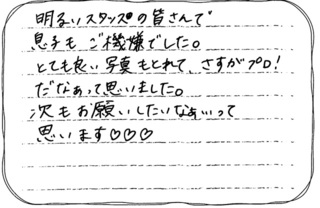 明るいスタッフの皆さんで
息子もご機嫌でした。
とても良い写真もとれて、さすがプロ!
だなぁって思いました。
次もお願いしたいなぁぃって
思います♡♡♡